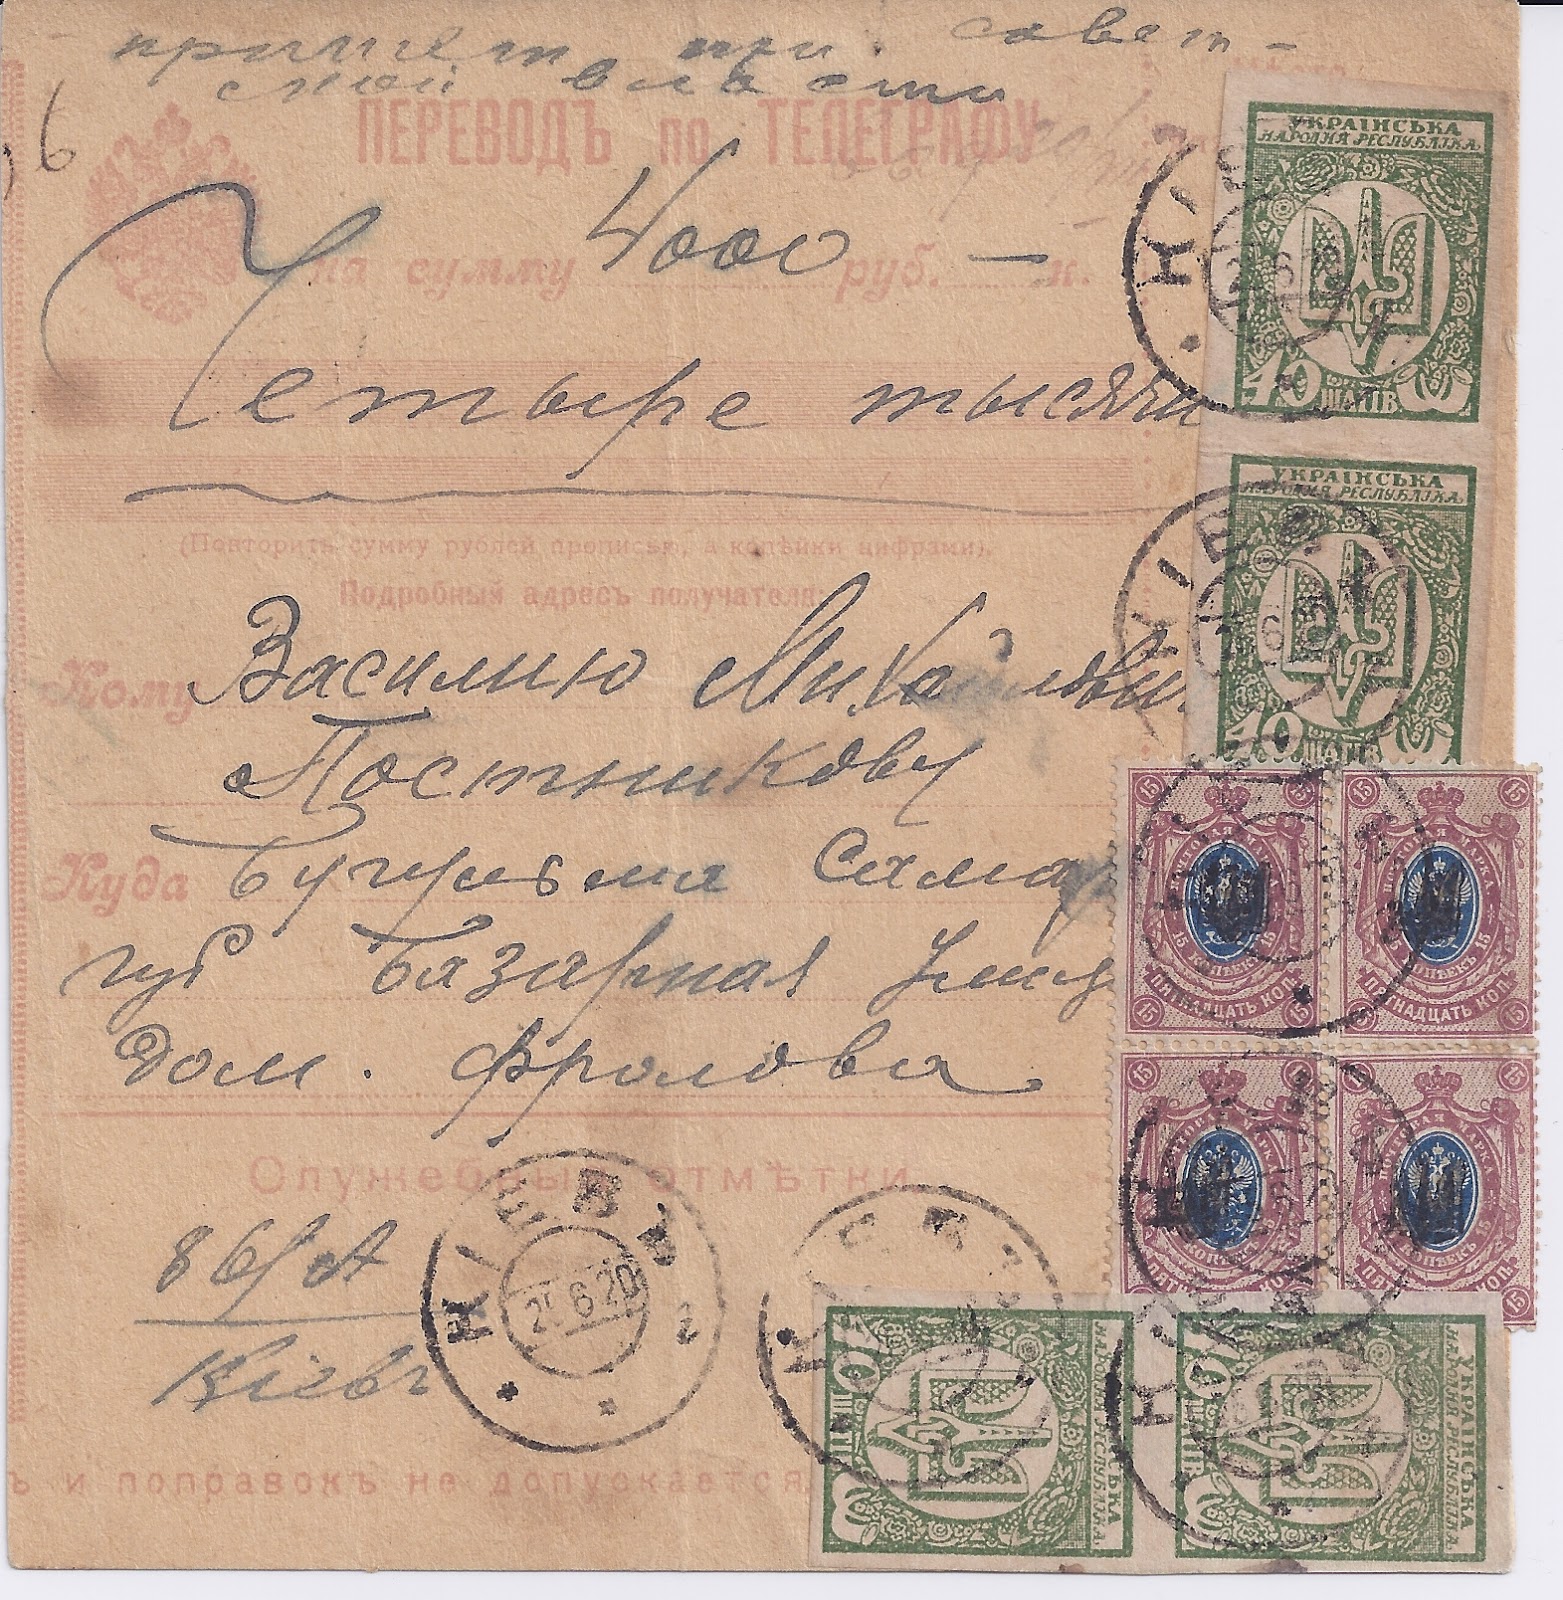 принят при совет-
ской власти
ПЕРЕВОДЪ по ТЕЛЕГРАФУ
на сумму 4000 руб. — к.
Четыре тысячи
(Повторить сумму рублей прописью, а копѣйки цифрами).
Подробный адресъ получателя:
Кому Василию Михайлови
Постникову
Куда Бугульма Самар
губ Базарная улиц
дом. Фролова
Служебныя отмѣтки.
86/А
Кіевъ
ъ и поправокъ не допускается
КІЕВЪ
25 6 20
2
УКРАЇНСЬКА
НАРОДНЯ РЕСПУБЛІКА
40 ШАГІВ
УКРАЇНСЬКА
НАРОДНЯ РЕСПУБЛІКА
40 ШАГІВ
15 15
ПОЧТОВАЯ МАРКА
15 КОПѢЕКЪ 15
15 ПЯТНАДЦАТЬ КОП. 15
15 15
ПОЧТОВАЯ МАРКА
15 КОПѢЕКЪ 15
15 ПЯТНАДЦАТЬ КОП. 15
15 15
ПОЧТОВАЯ МАРКА
15 КОПѢЕКЪ 15
15 ПЯТНАДЦАТЬ КОП. 15
15 15
ПОЧТОВАЯ МАРКА
15 КОПѢЕКЪ 15
15 ПЯТНАДЦАТЬ КОП. 15
УКРАЇНСЬКА
НАРОДНЯ РЕСПУБЛІКА
40 ШАГІВ
УКРАЇНСЬКА
НАРОДНЯ РЕСПУБЛІКА
40 ШАГІВ